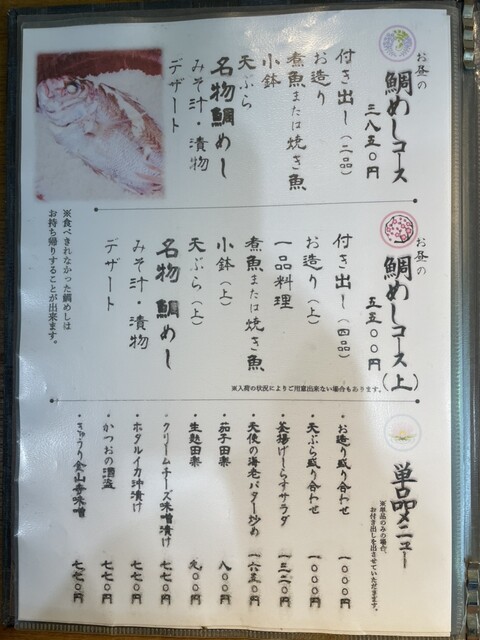 お昼の
鯛めしコース
三八五〇円
付き出し(二品)
お造り
煮魚または焼き魚
小鉢
天ぷら
名物鯛めし
みそ汁・漬物
デザート
お昼の
鯛めしコース(上)
五五〇〇円
付き出し(四品)
お造り(上)
一品料理
煮魚または焼き魚
小鉢(上)
天ぷら(上)
名物鯛めし
みそ汁・漬物
デザート
※食べきれなかった鯛めしは
お持ち帰りすることが出来ます。
※入荷の状況によりご用意出来ない場合もあります。
単品メニュー
※単品のみの場合、
お付き出しを出させていただきます。
・お造り盛り合わせ 一〇〇〇円
・天ぷら盛り合わせ 一〇〇〇円
・釜揚げしらすサラダ 一三二〇円
・天使の海老バター炒め 一六五〇円
・茄子田楽 八〇〇円
・生麩田楽 九〇〇円
・クリームチーズ味噌漬け 七七〇円
・ホタルイカ沖漬け 七七〇円
・かつおの酒盗 七七〇円
・きゅうり金山寺味噌 七七〇円